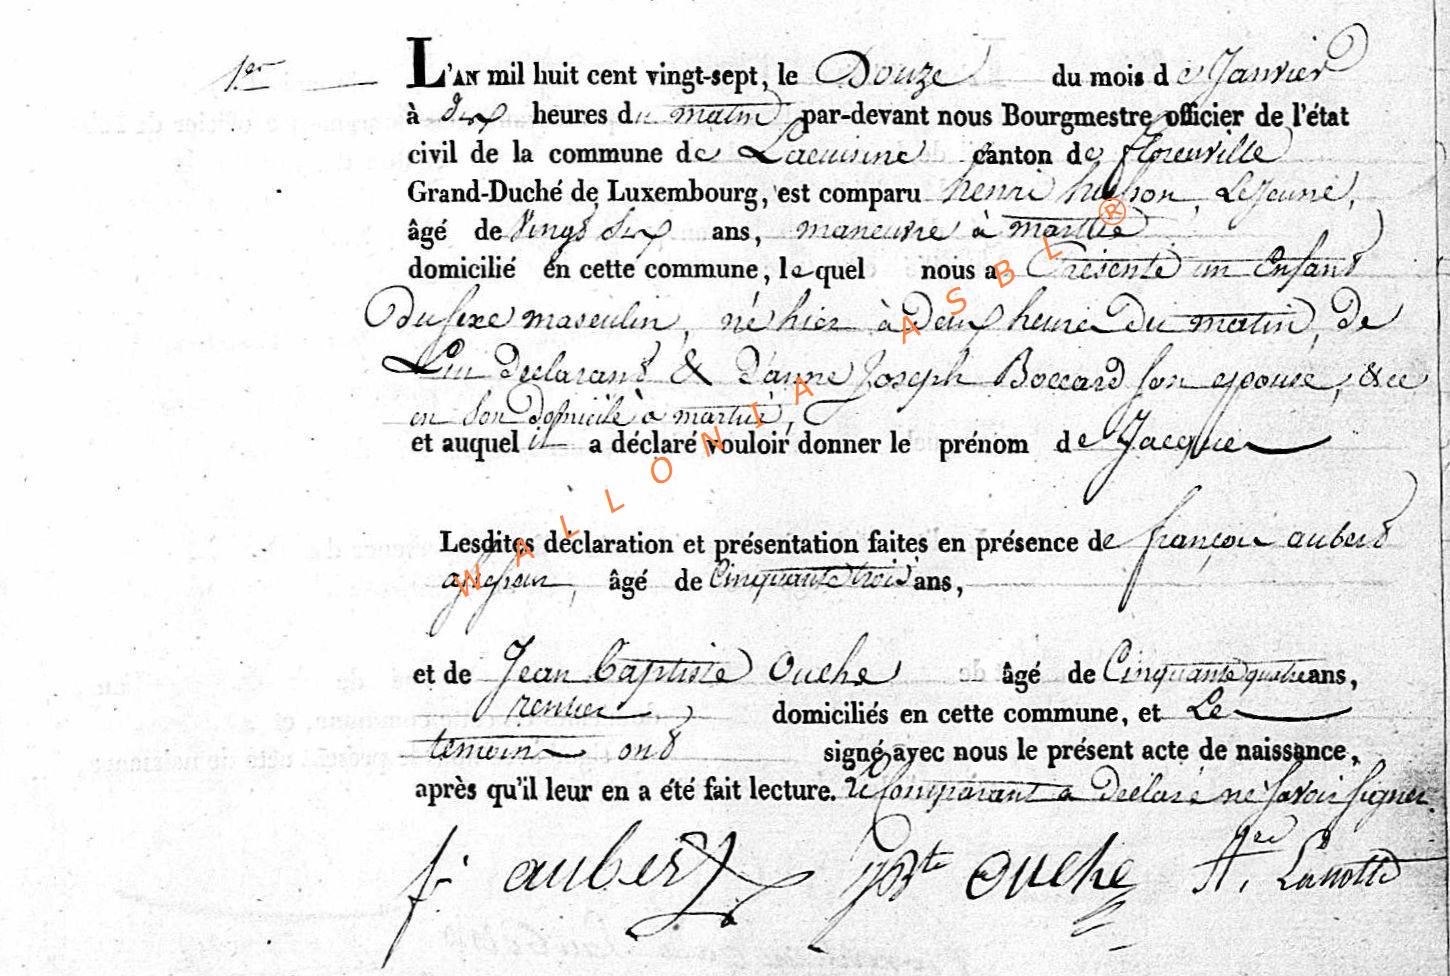 1.er L'AN mil huit cent vingt-sept, le Douze du mois de Janvier
à dix heures du matin par-devant nous Bourgmestre officier de l'état
civil de la commune de Lacuisine canton de florenville
Grand-Duché de Luxembourg, est comparu henri hubon, LeJeune,
âgé de vingt six ans, maneuvre à martué
domicilié en cette commune, lequel nous a Présenté un Enfant
Du sexe masculin, né hier à Deux heures Du matin, De
Lui Declarant & D'anne Joseph Boccard son epouse, & ce
en son Domicile à martué,
et auquel il a déclaré vouloir donner le prénom de Jacques
Lesdites déclaration et présentation faites en présence de françois aubert
assesseur, âgé de Cinquante trois ans,
et de Jean Baptiste Ouche âgé de Cinquante quatre ans,
rentier domiciliés en cette commune, et Les
temoins ont signé avec nous le présent acte de naissance,
après qu'il leur en a été fait lecture. Le Comparant a Déclaré ne savoir signer.
f. aubert JBte Ouche H. Lanotte
WALLONIA ASBL ®